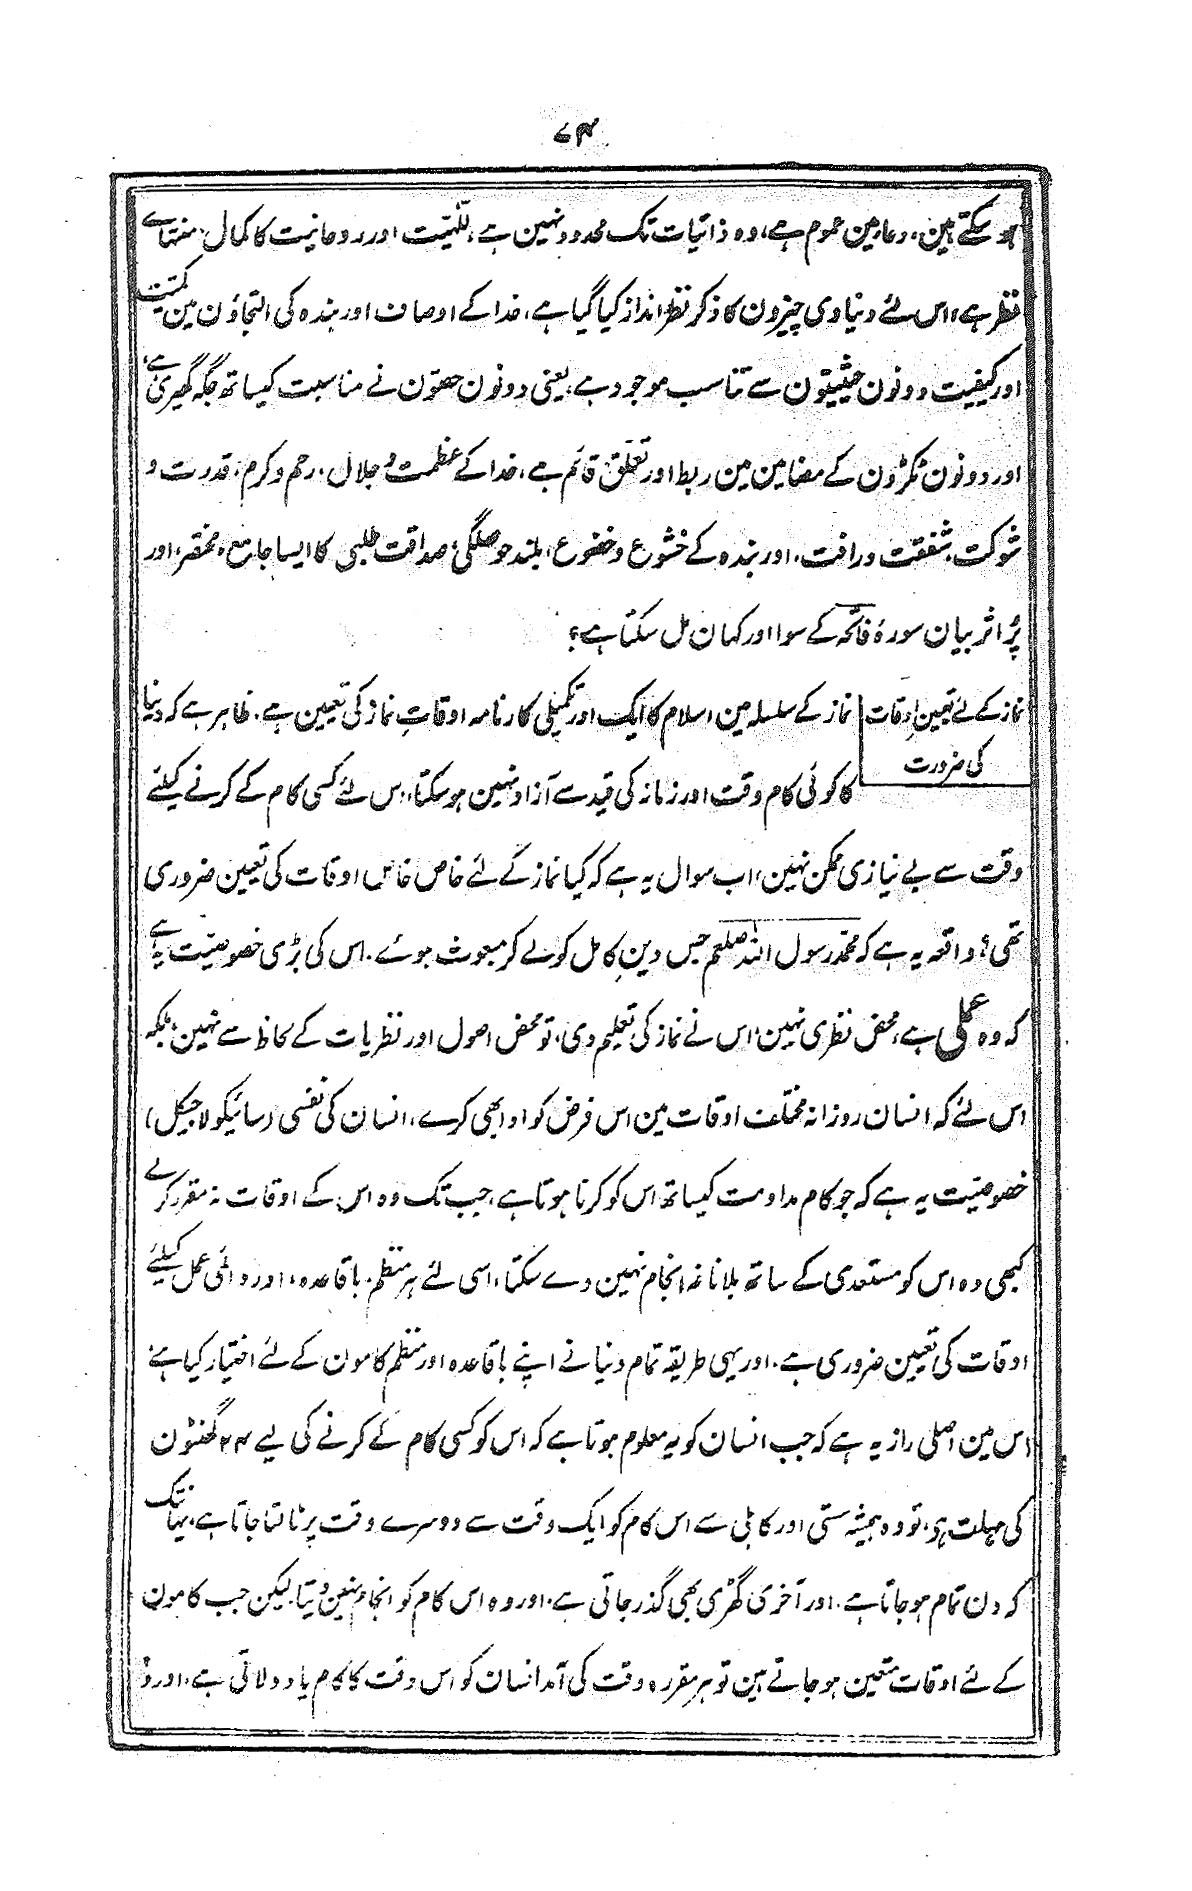 ۷۴
ہو سکتے ہین، دعا مین عموم ہے، وہ ذاتیات تک محدود نہین ہے، للّٰہیت اور روحانیت کا کمال منتہاے
نظر ہے، اس لئے دنیاوی چیزون کا ذکر نظر انداز کیا گیا ہے، خدا کے اوصاف اور بندہ کی التجاؤن مین کمیت
اور کیفیت دونون حیثیتون سے تناسب موجود ہے، یعنی دونون حصّون نے مناسبت کیساتھ جگہ گھیری ہے،
اور دونون ٹکڑون کے مضامین مین ربط اور تعلق قائم ہے، خدا کے عظمت و جلال، رحم و کرم، قدرت و
شوکت، شفقت و رافت، اور بندہ کے خشوع و خضوع، بلند حوصلگی، صداقت طلبی کا ایسا جامع، مختصر، اور
پُر اثر بیان سورۂ فاتحہ کے سوا اور کہان مل سکتا ہے؟
نماز کے لئے تعیین اوقات کی ضرورت
نماز کے سلسلہ مین اسلام کا ایک اور تکمیلی کارنامہ اوقاتِ نماز کی تعیین ہے، ظاہر ہے کہ دنیا
کا کوئی کام وقت اور زمانہ کی قید سے آزاد نہین ہو سکتا، اس لئے کسی کام کے کرنے کیلئے
وقت سے بے نیازی ممکن نہین، اب سوال یہ ہے کہ کیا نماز کے لئے خاص خاص اوقات کی تعیین ضروری
تھی؟ واقعہ یہ ہے کہ محمد رسول اللہ صلعم جس دینِ کامل کو لے کر مبعوث ہوئے، اس کی بڑی خصوصیت یہ ہے
کہ وہ عملی ہے، محض نظری نہین، اس نے نماز کی تعلیم دی، تو محض اصول اور نظریات کے لحاظ سے نہین، بلکہ
اس لئے کہ انسان روزانہ مختلف اوقات مین اس فرض کو ادا بھی کرے، انسان کی نفسی (سائیکولاجیکل)
خصوصیت یہ ہے کہ جو کام مداومت کیساتھ اس کو کرنا ہوتا ہے، جب تک وہ اس کے اوقات نہ مقرر کرلے
کبھی وہ اس کو مستعدی کے ساتھ بلا ناغہ انجام نہین دے سکتا، اسی لئے ہر منظم، باقاعدہ، اور دائمی عمل کیلئے
اوقات کی تعیین ضروری ہے، اور یہی طریقہ تمام دنیا نے اپنے باقاعدہ اور منظم کامون کے لئے اختیار کیا ہے
اس مین اصلی راز یہ ہے کہ جب انسان کو یہ معلوم ہوتا ہے کہ اس کو کسی کام کے کرنے کی لیے ۲۴ گھنٹون
کی مہلت ہو، تو وہ ہمیشہ سستی اور کاہلی سے اس کام کو ایک وقت سے دوسرے وقت پر ٹالتا جاتا ہے، یہانتک
کہ دن تمام ہو جاتا ہے، اور آخری گھڑی بھی گذر جاتی ہے، اور وہ اس کام کو انجام نہین دیتا، لیکن جب کامون
کے لئے اوقات متعین ہو جاتے ہین تو ہر مقررہ وقت کی آمد انسان کو اس وقت کا کام یاد دلاتی ہے، اور وہ